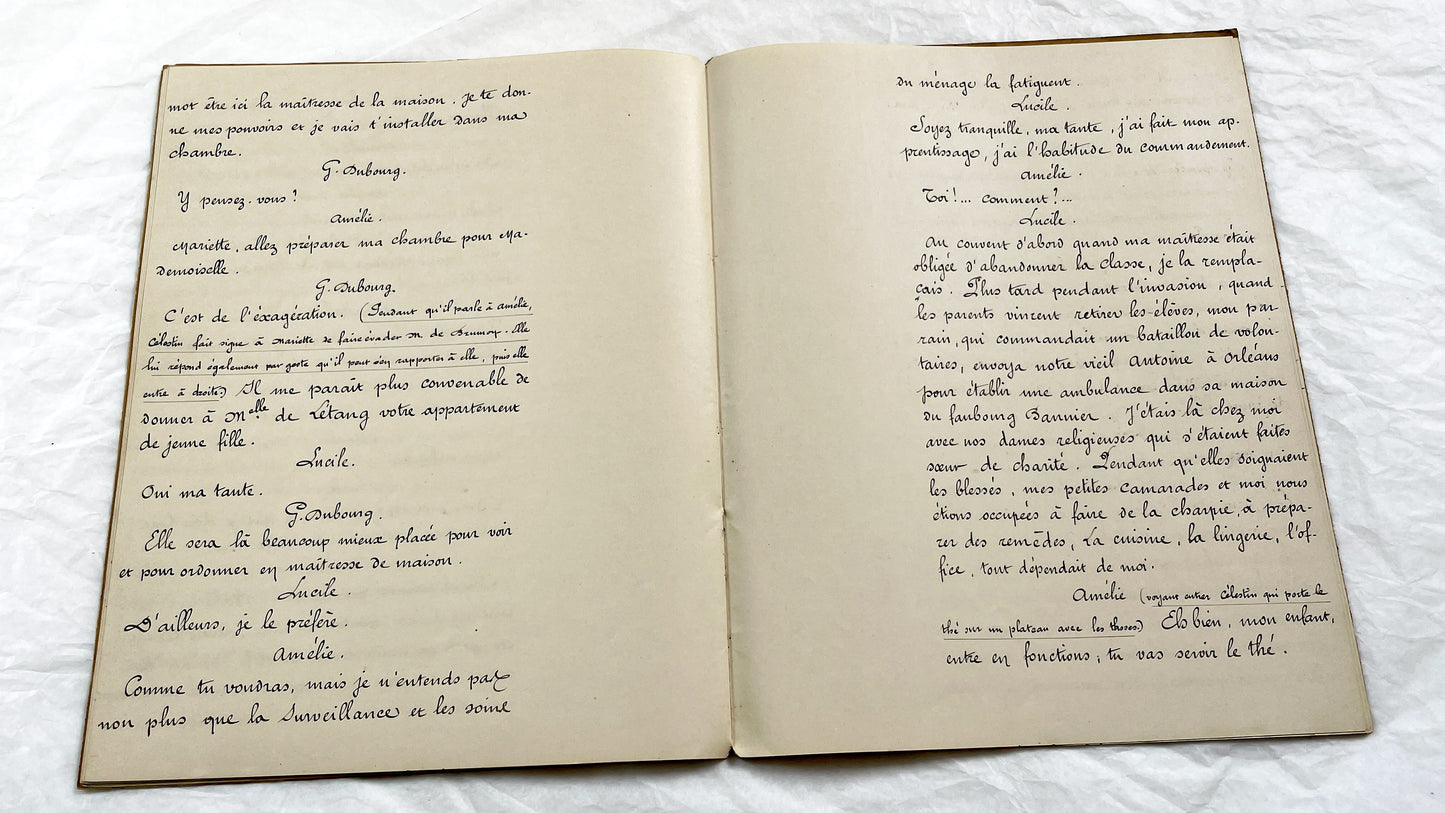 mot être ici la maîtresse de la maison. Je te don-
ne mes pouvoirs et je vais t'installer dans ma
chambre.
G. Dubourg.
Y pensez-vous?
Amélie.
Mariette, allez préparer ma chambre pour Ma-
demoiselle.
G. Dubourg.
C'est de l'éxagération. (Pendant qu'il parle à Amélie,
Célestin fait signe à Mariette de faire évader M. de Brumoy. Elle
lui répond également par geste qu'il peut s'en rapporter à elle, puis elle
entre à droite.) Il me paraît plus convenable de
donner à Melle de Létang votre appartement
de jeune fille.
Lucile.
Oui ma tante.
G. Dubourg.
Elle sera là beaucoup mieux placée pour voir
et pour ordonner en maîtresse de maison.
Lucile.
D'ailleurs, je le préfère.
Amélie.
Comme tu voudras, mais je n'entends pas
non plus que la surveillance et les soins
du ménage la fatiguent.
Lucile.
Soyez tranquille, ma tante, j'ai fait mon ap-
prentissage, j'ai l'habitude du commandement.
Amélie.
Toi!... comment?...
Lucile.
Au couvent d'abord quand ma maîtresse était
obligée d'abandonner la classe, je la rempla-
çais. Plus tard pendant l'invasion, quand
les parents vinrent retirer les élèves, mon par-
rain, qui commandait un bataillon de volon-
taires, envoya notre vieil Antoine à Orléans
pour établir une ambulance dans sa maison
du faubourg Bannier. J'étais là chez moi
avec nos dames religieuses qui s'étaient faites
sœur de charité. Pendant qu'elles soignaient
les blessés, mes petites camarades et moi nous
étions occupées à faire de la charpie, à prépa-
rer des remèdes, La cuisine, la lingerie, l'of-
fice, tout dépendait de moi.
Amélie (voyant entrer Célestin qui porte le
thé sur un plateau avec les tasses.) Eh bien, mon enfant,
entre en fonctions; tu vas servir le thé.